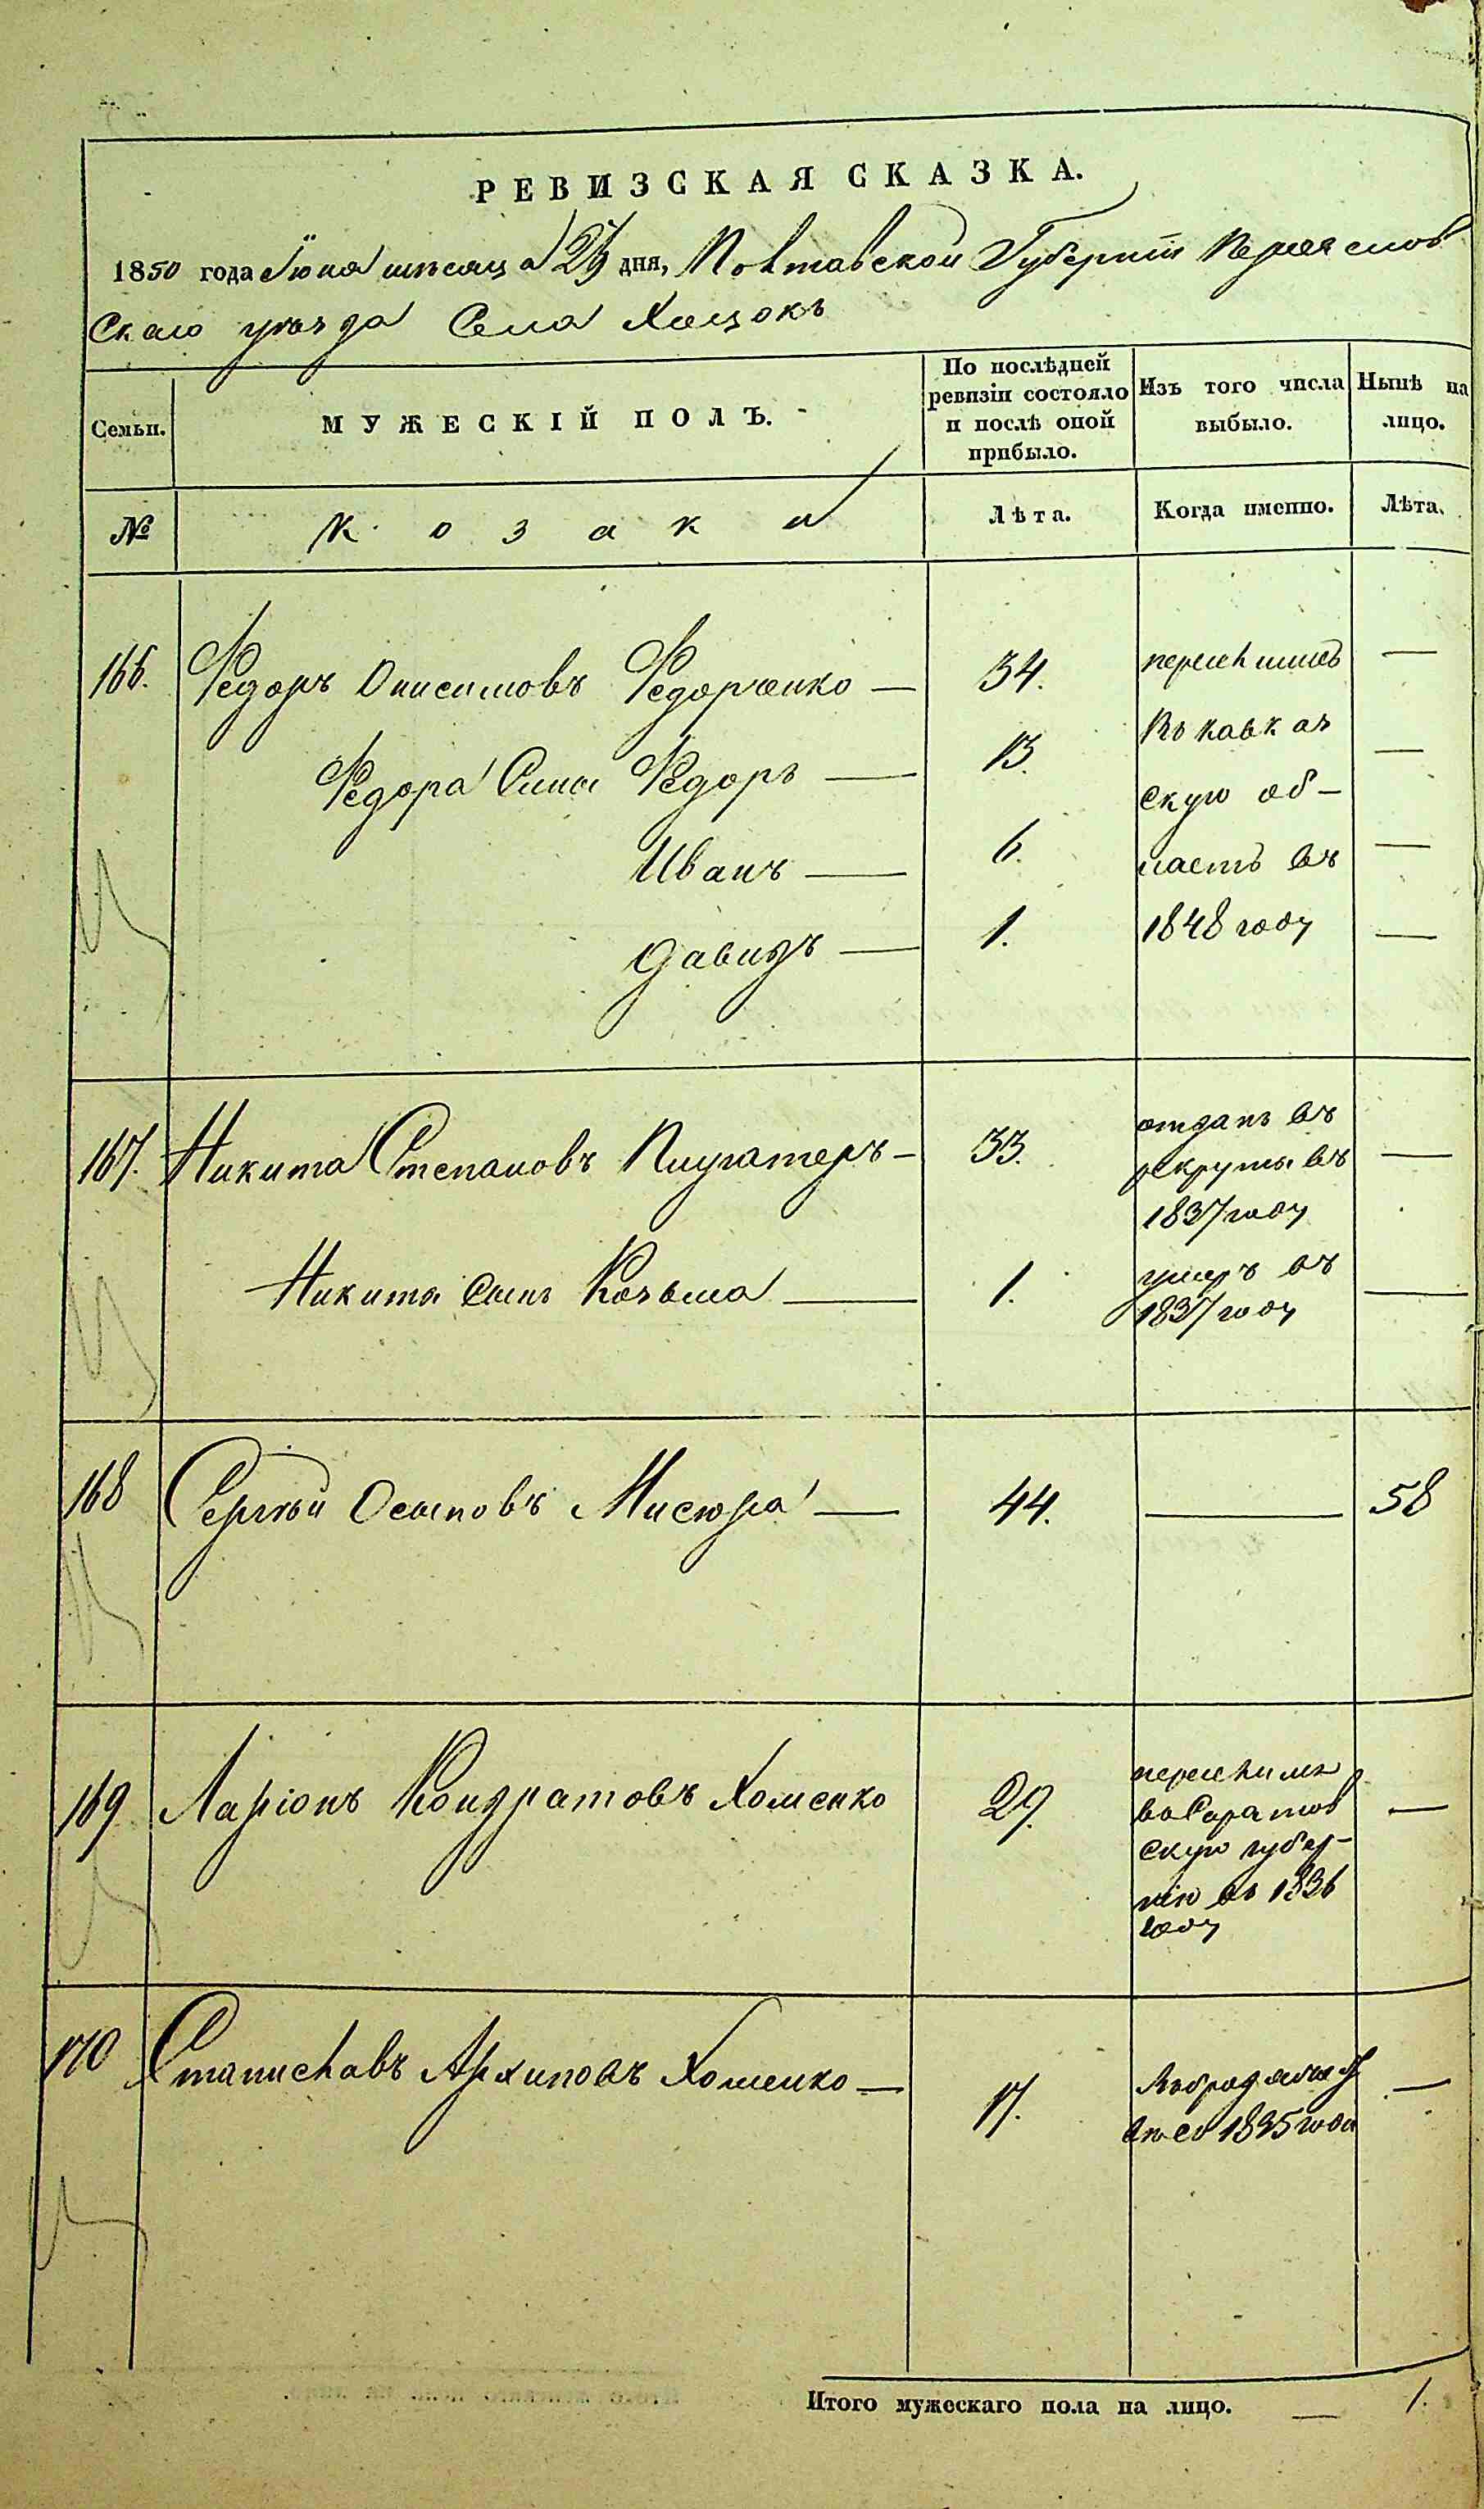 РЕВИЗСКАЯ СКАЗКА.
1850 года Іюня мѣсяца дня, Полтавской Губерніи Переяслов
скаго уѣзда Села Хоцокъ
Семьи.
МУЖЕСКІЙ ПОЛЪ.
По послѣдней ревизіи состояло и послѣ оной прибыло.
Изъ того числа выбыло.
Нынѣ на лицо.
№
Козаки
Лѣта.
Когда именно.
Лѣта.
166. Федоръ Онисимовъ Федорченко — 34. переселились —
Федора Сыны Федоръ — 13. въ кавказ —
Иванъ — 6. скую об- —
Давидъ — 1. ласть въ —
1848 году
167. Никита Степановъ — 33. отданъ въ —
рекруты въ
1837 году
Никиты сынъ Козьма — 1. умеръ въ —
1837 году
168 Сергѣй Осиповъ Мисюра — 44. — 58
169 Ларіонъ Кондратовъ Хоменко 29. переселился —
въ Саратов
скую губер-
нію въ 1836
году
170 Станиславъ Архиповъ Хоменко — 17. —
съ 1835 года
Итого мужескаго пола на лицо. — 1.